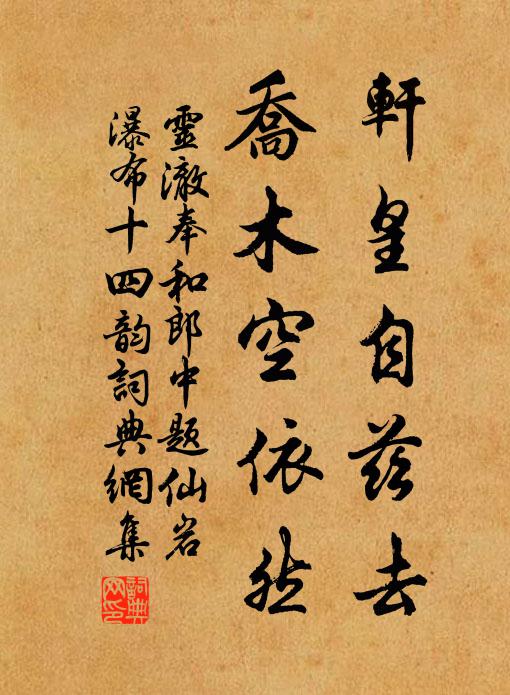 軒皇自茲去
喬木空依然
靈澈奉和郎中題仙岩
瀑布十四韵詞典網集
詞典網印